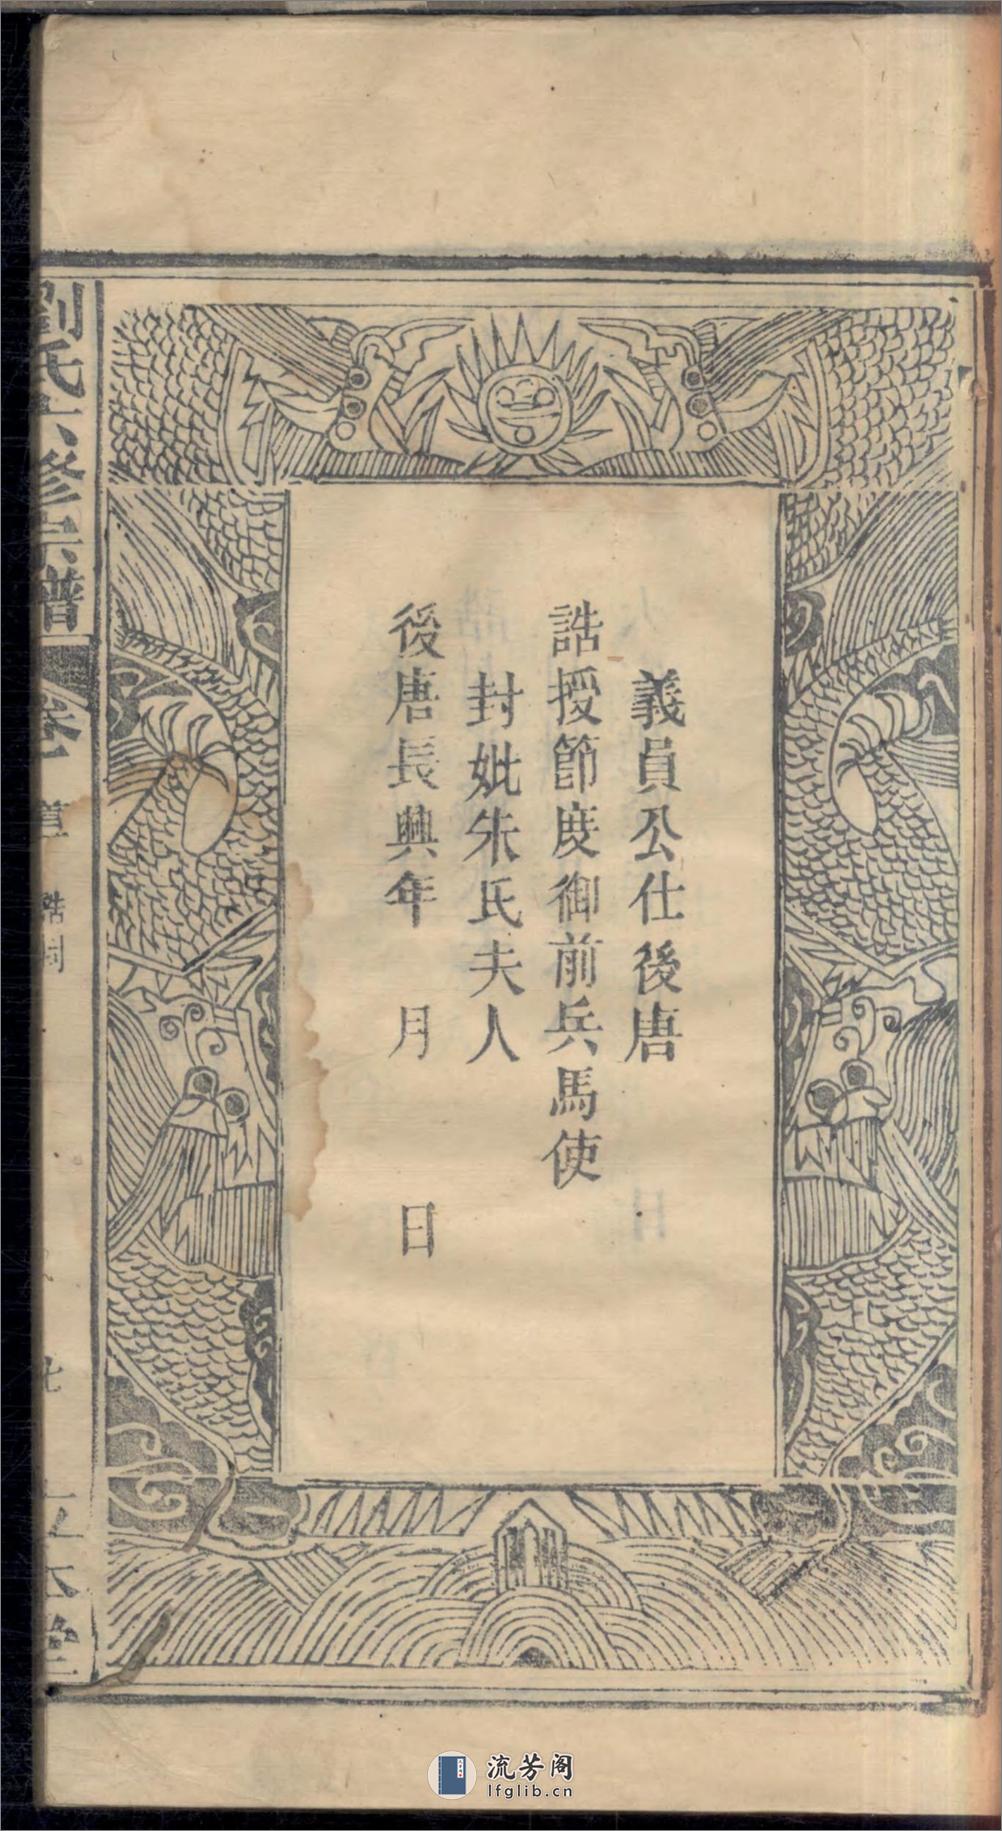 義員公仕後唐
誥授節度御前兵馬使
封妣朱氏夫人
後唐長興年 月 日
劉氏六修宗譜
卷 誥封
立本堂
流芳阁
lfglib.cn